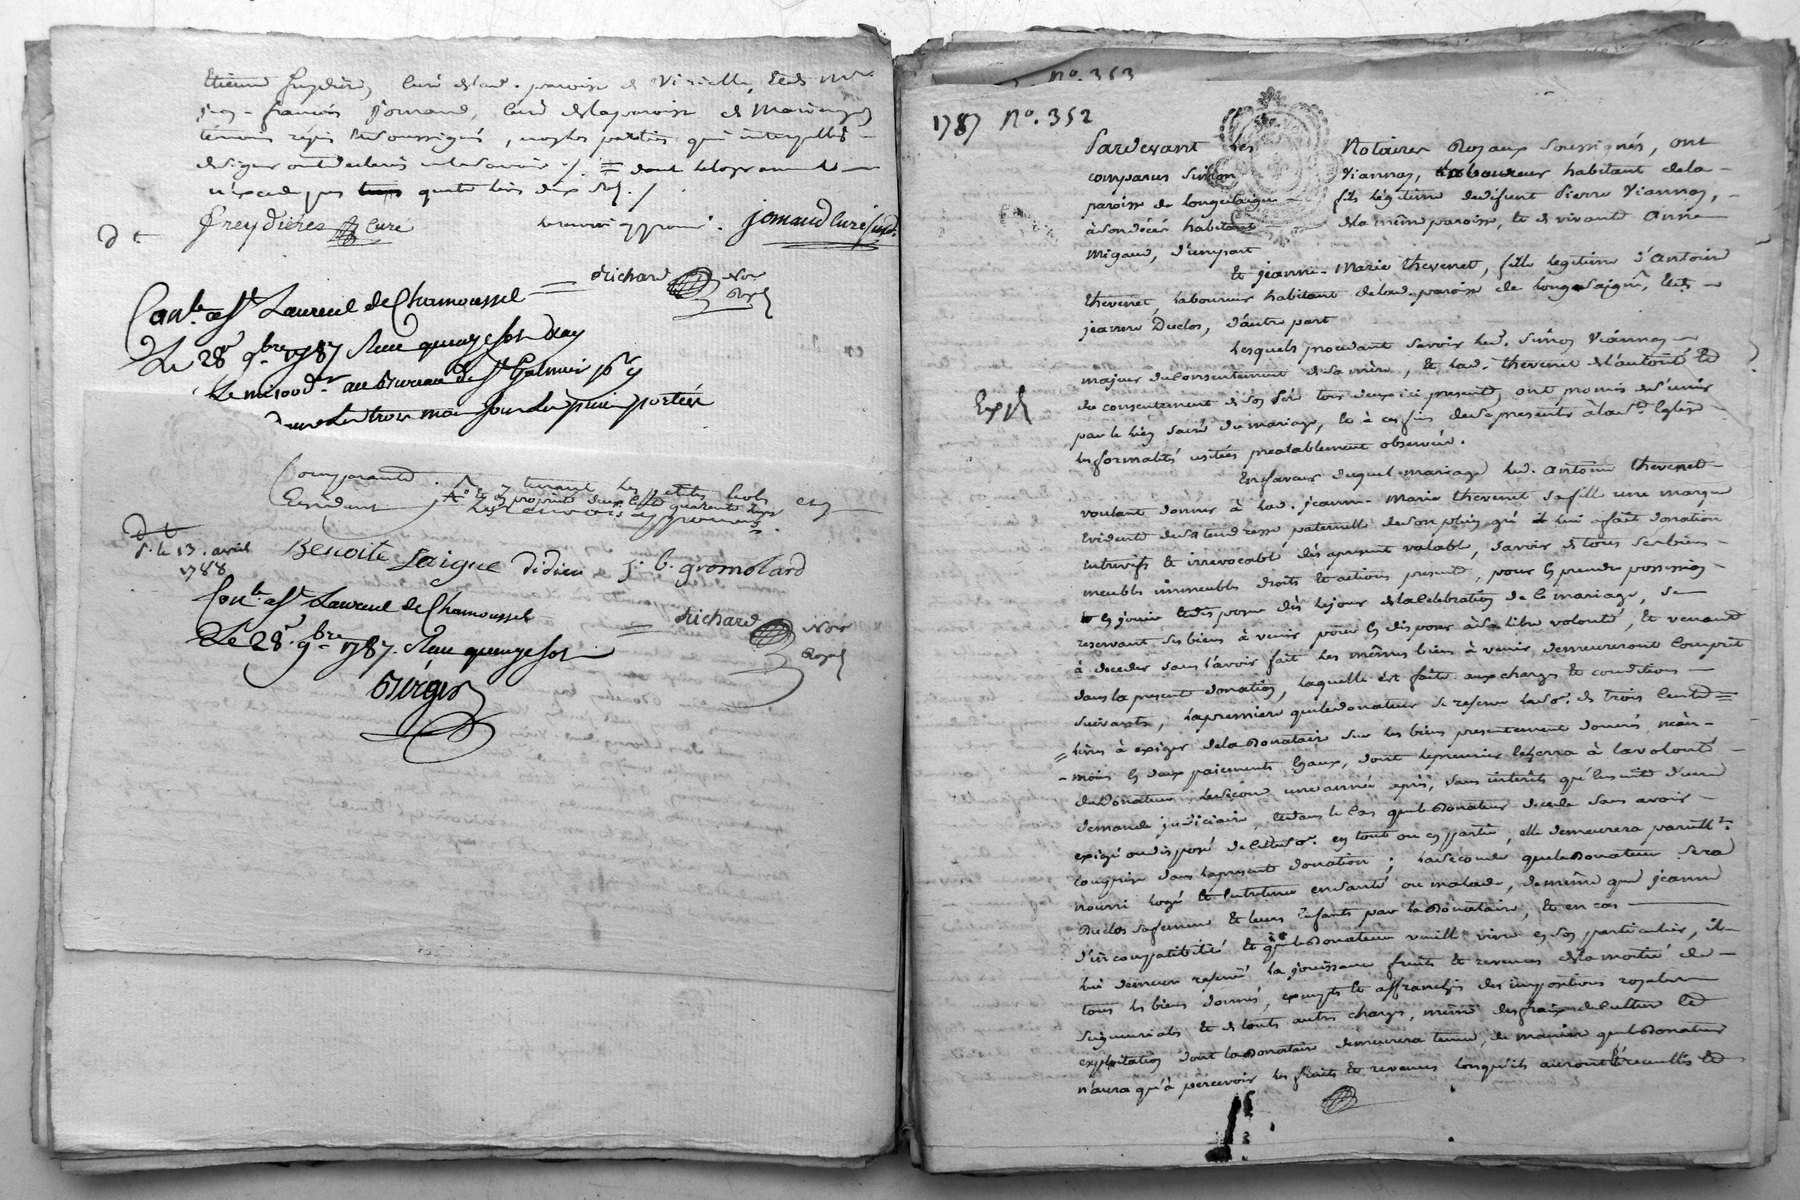 Etienne freydière, curé de lad. paroisse de Viricelle, et de Mre
jean-francois jomand, curé de la paroisse de Maringes
témoins requis et soussignés, non les parties qui interpellés
de signer ont déclaré ne le savoir ./. = dont le lograment
n'excède pas quatre livres dix sols ./
freydières curé
jomand curé
Richard Nore Royal
Conlé à St Laurent de Chamousset
Le 28e 9bre 1787 Reçu quinze sols
Le mis 100d. au Bureau de St Galmier
dans les trois mois sous les peines portées
Comparants
Benoite Laigue didier j. b. gromolard
dt
s. le 13. avril
1788
Conlé à St Laurent de Chamousset
Le 28e. 9bre 1787. Reçu quinze sols
Richard Nore Royal
Burger
no. 353
1787 No. 352
Pardevant les Notaires Royaux soussignés, ont
comparus Simon Viannay, laboureur habitant de la
paroisse de Longessaigne fils légitime de défunt Pierre Viannay,
à son décès habitant de la même paroisse, et de vivante Anne
Migaud, d'une part
Et jeanne-Marie thevenet, fille legitime d'Antoine
thevenet, laboureur habitant de lad. paroisse de Longessaigne, et de
jeanne Duclos, d'autre part
Lesquels procedant savoir led. Simon Viannay
majeur du consentement de sa mère, et lad. thevenet de l'autorité et
du consentement de son père tous deux ici presents, ont promis de s'unir
Expé
par le lien sacré du mariage, et à ces fins de se presenter à la Ste Eglise
les formalités usitées prealablement observées.
En faveur duquel mariage led. antoine thevenet
voulant donner à lad. jeanne-Marie thevenet sa fille une marque
evidente de sa tendresse paternelle de son plein gré il lui a fait donation
entrevifs et irrevocable dès apresent valable, savoir de tous ses biens
meubles immeubles droits et actions presents, pour en prendre possession
en jouir et disposer dès le jour de la celebration de ce mariage, se
reservant ses biens à venir pour en disposer à sa libre volonté, et venant
à deceder sans l'avoir fait les mêmes biens à venir demeureront compris
dans la presente donation, laquelle est faite aux charges et conditions
suivantes, la premiere que le donateur se reserve la so. de trois cents
livres à exiger de la Donataire sur les biens presentement donnés, neàn-
-moins en deux paiements egaux, dont le premier se fera à la volonté
du Donateur le second une année après, sans interêts qu'ensuite d'une
demande judiciaire, et dans le cas que le Donateur decede sans avoir
exigé ou disposé de cette so. en tout ou en partie, elle demeurera pareillt.
comprise dans la presente donation; la seconde que le Donateur sera
nourri logé et entretenu en santé ou maladie, de même que jeanne
Duclos sa femme et leurs enfants par la Donataire, et en cas
d'incompatibilité et que le Donateur veuille vivre en son particulier, il
lui demeure reservé la jouissance fruits et revenus de la moitié de
tous les biens donnés, exempts et affranchis des impositions royales
seigneuriales et de toute autre charge, même des fraix de culture et
exploitation dont la Donataire demeurera tenue, de maniere que le Donateur
n'aura qu'à percevoir les fruits et revenus lorsqu'ils auront été recueillis et